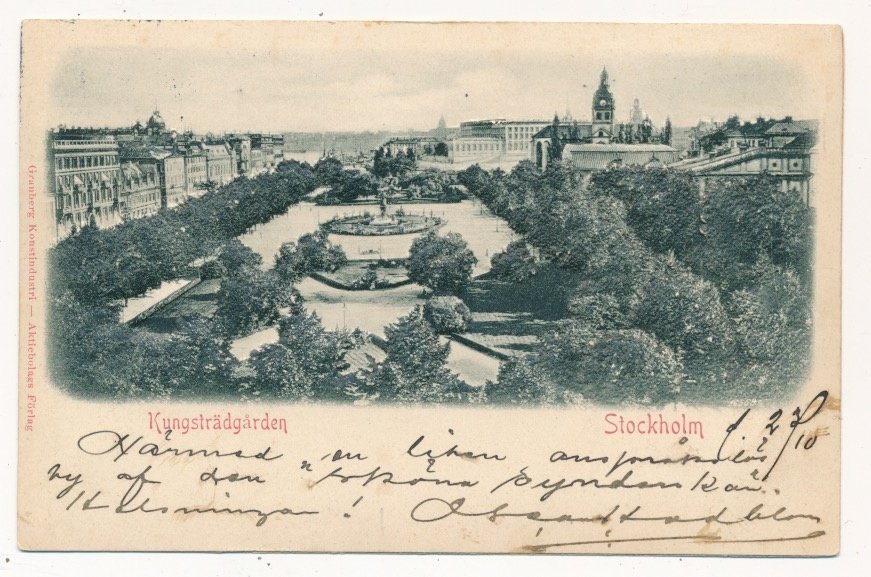 Granberg Konstindustri — Aktiebolags Förlag
Kungsträdgården
Stockholm
27/10
Härmed en liten anspråkslös
vy af den "sköna syndens
Helsningar!